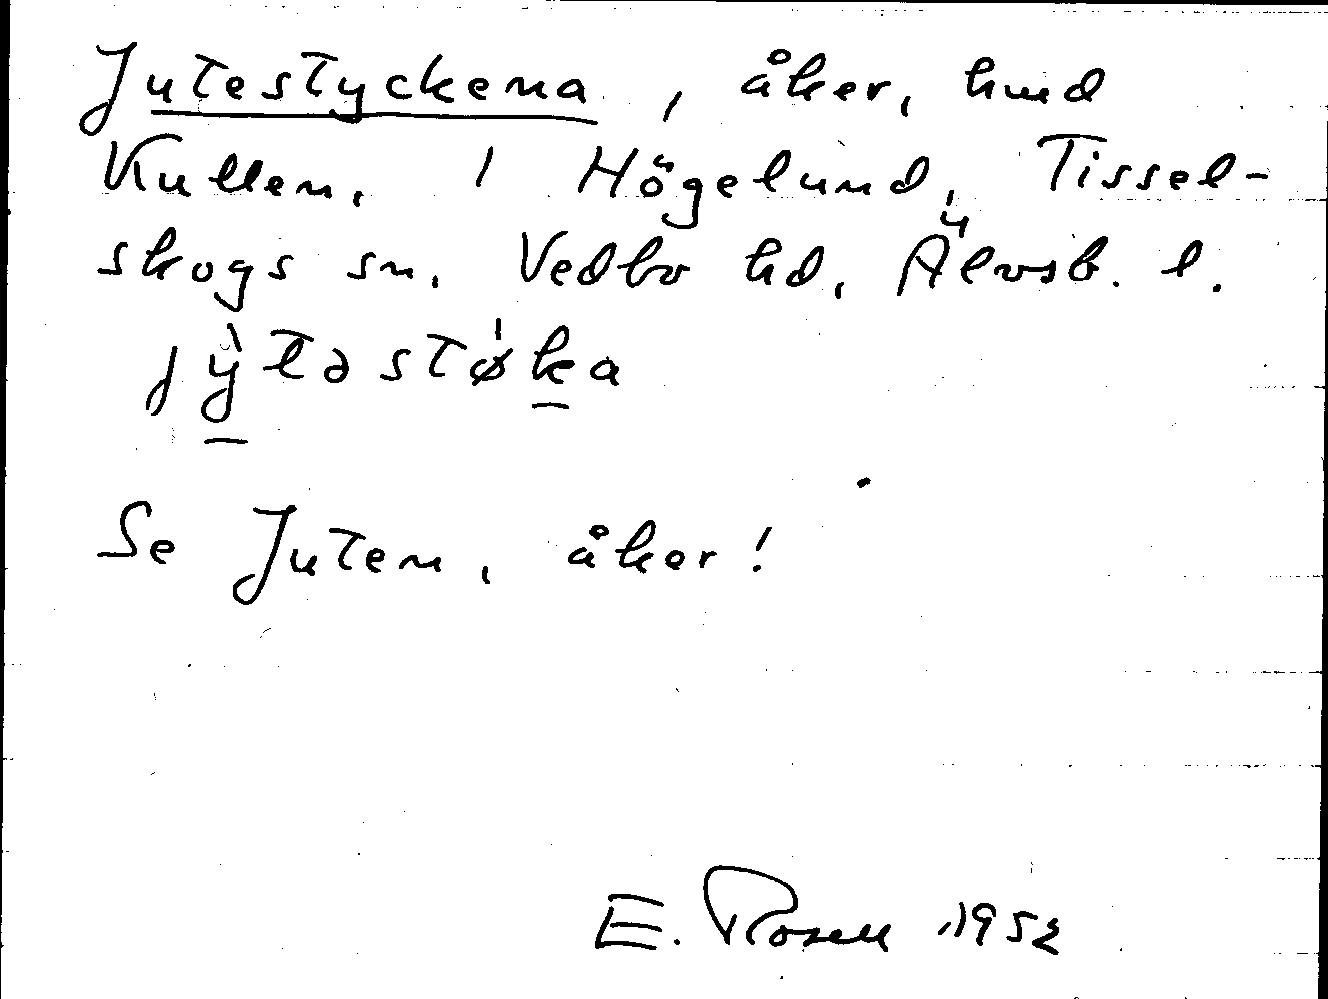 Jutestyckena, åker, hmd
Kullen, 1 Högelund, Tissel-
skogs sn. Vedbo hd, Älvsb. l.
Se Juten, åker!
E. Rosell 1952